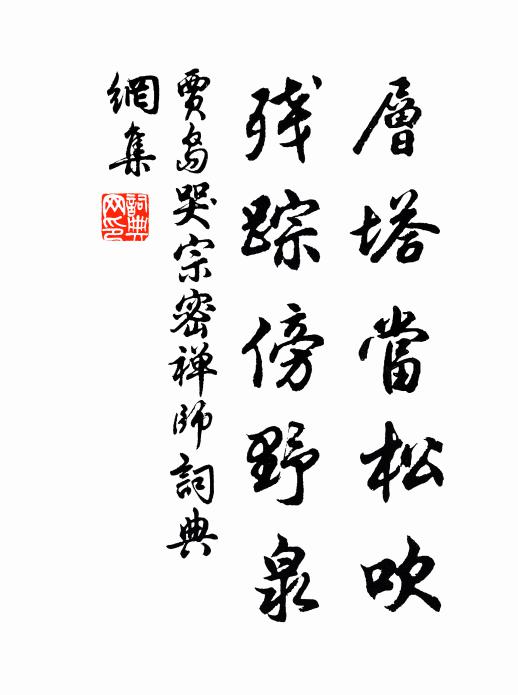 層塔當松吹
残踪傍野泉
賈島哭宗密禅師詞典
網集
詞典
网印